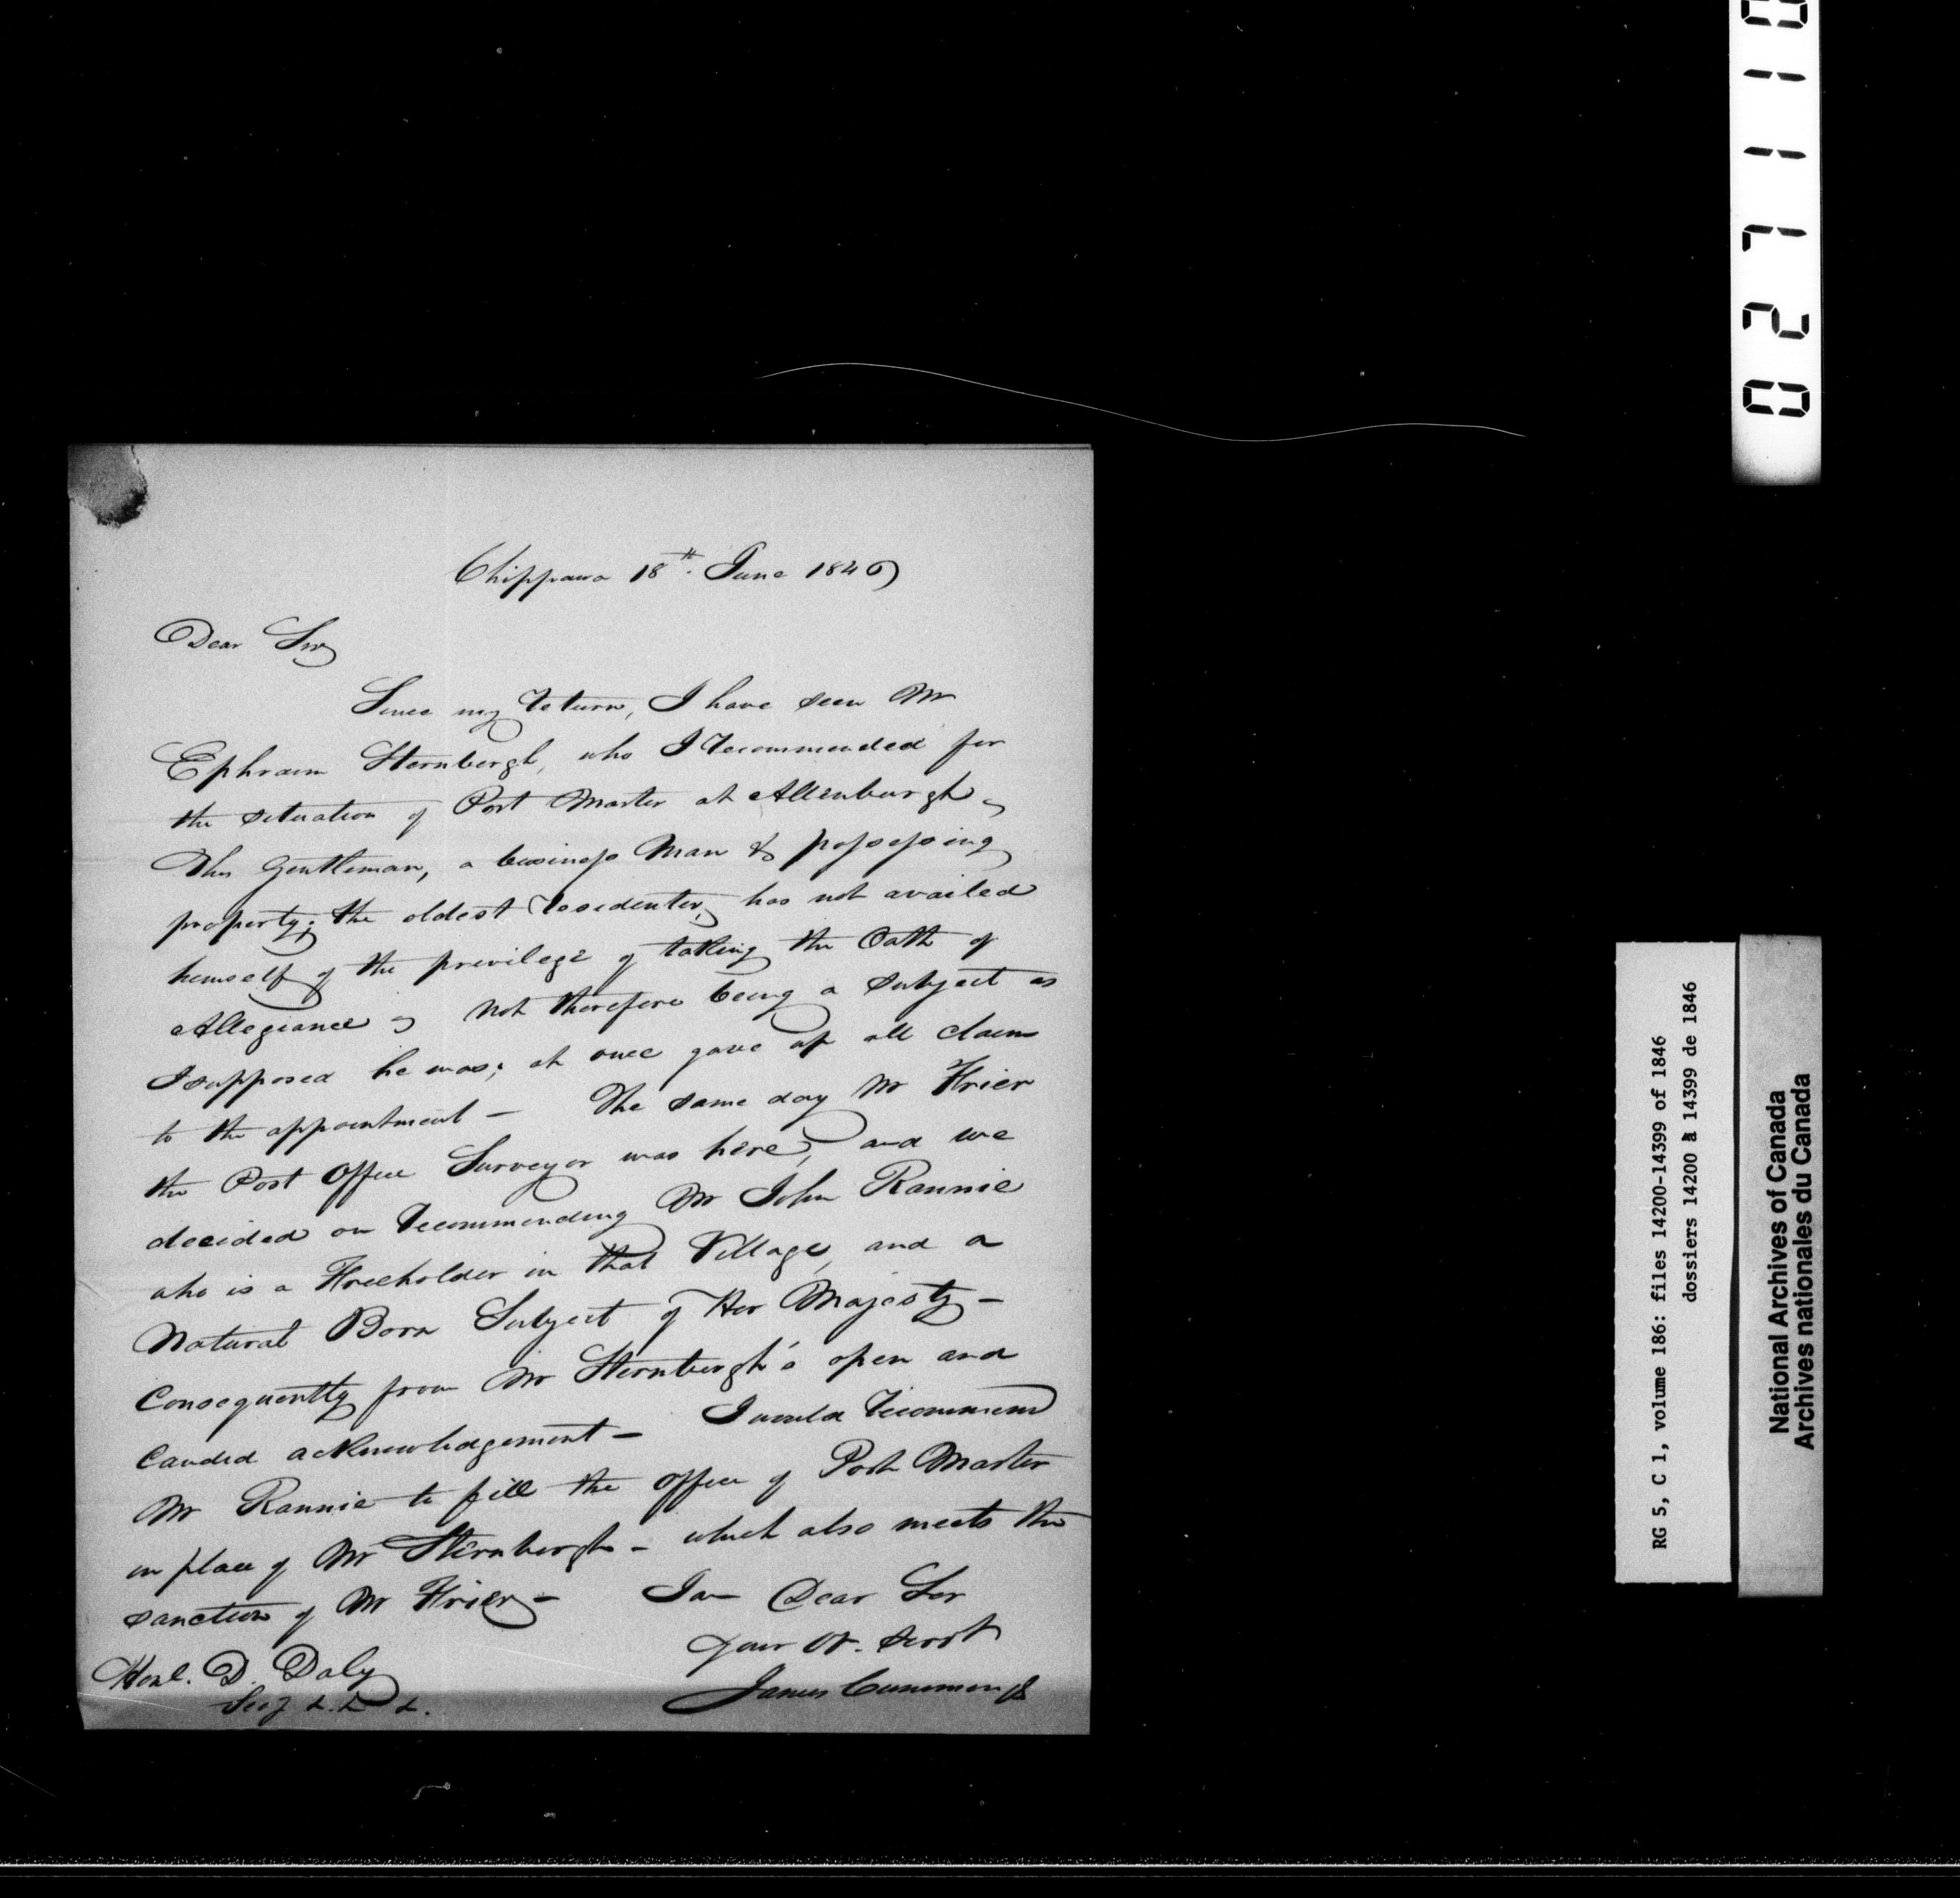 Chippawa 18th. June 1846
Dear Sir
Since my return, I have seen Mr
Ephraim Sternbergh, who I recommended for
the situation of Post Master at Allenburgh,
This Gentleman, a business Man & possessing
property; the oldest residenter, has not availed
himself of the privilege of taking the Oath of
Allegiance, not therefore being a Subject as
I supposed he was; at once gave up all claim
to the appointment — The same day Mr Frier
the Post Office Surveyor was here, and we
decided on recommending Mr John Rannie
who is a Freeholder in that Village, and a
Natural Born Subject of Her Majesty —
Consequently from Mr Sternbergh's open and
Candid acknowledgement — I would recommend
Mr Rannie to fill the office of Post Master
in place of Mr Sternbergh — which also meets the
sanction of Mr Frier — I am Dear Sir
Your Ot. Servt
James Cummings
Honl. D. Daly
Secy &. &. &.
0
1
1
1
7
2
0
RG 5, C 1, volume 186: files 14200-14399 of 1846
dossiers 14200 à 14399 de 1846
National Archives of Canada
Archives nationales du Canada